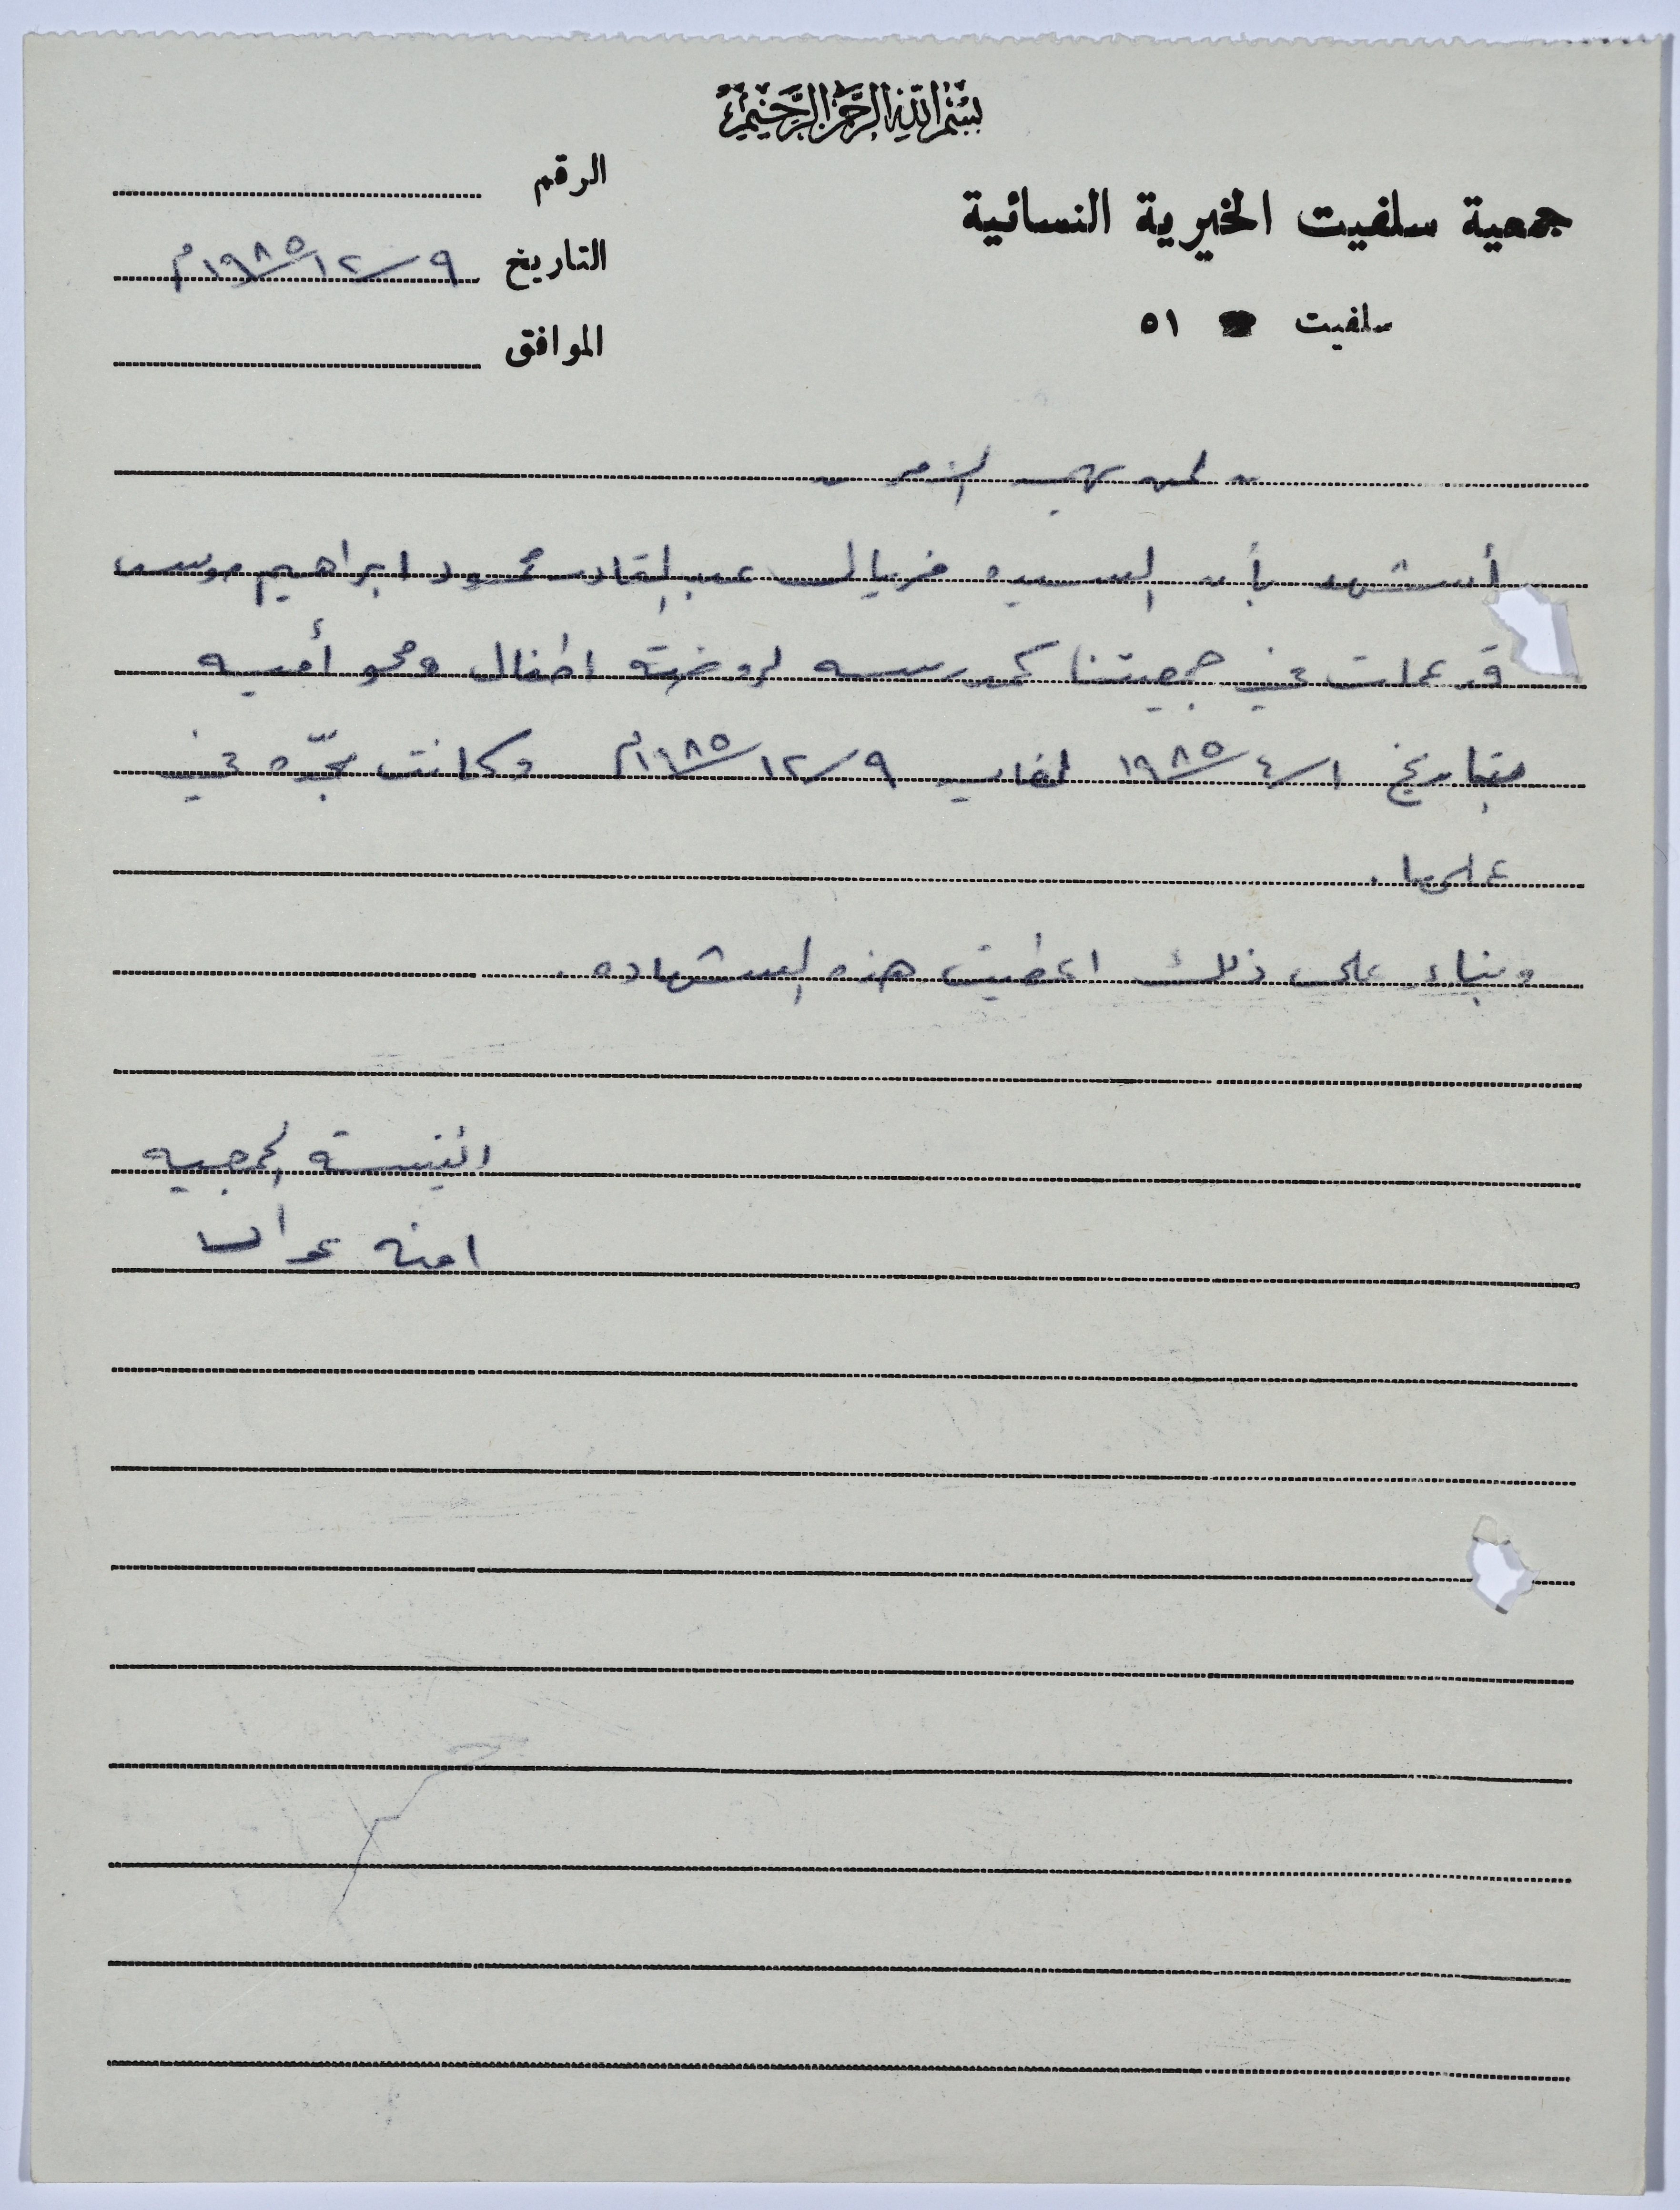 بسم الله الرحمن الرحيم
جمعية سلفيت الخيرية النسائية
سلفيت ٥١
الرقم
التاريخ ٩/١٢/١٩٨٥م
الموافق
لمن يهمه الأمر
أشهد بأن السيده فريال عبد القادر محمود ابراهيم موسى
قد عملت في جمعيتنا كمدرسه لروضة اطفال ومحو أميه
بتاريخ ١/٤/١٩٨٥ لغاية ٩/١٢/١٩٨٥م وكانت مجدّه في
عملها .
وبناء على ذلك اعطيت هذه الشهاده .
رئيسة الجمعيه
امنه